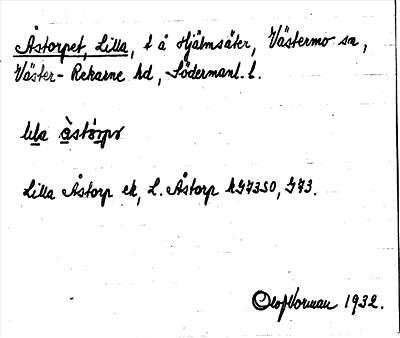 Åstorpet, Lilla, t å Hjälmsäter, Västermo sn,
Väster-Rekarne hd, Södermanl. l.
lıla àstórpɘ
Lilla Åstorp ek, L. Åstorp hG7350, G73.
Olof Norman 1932.